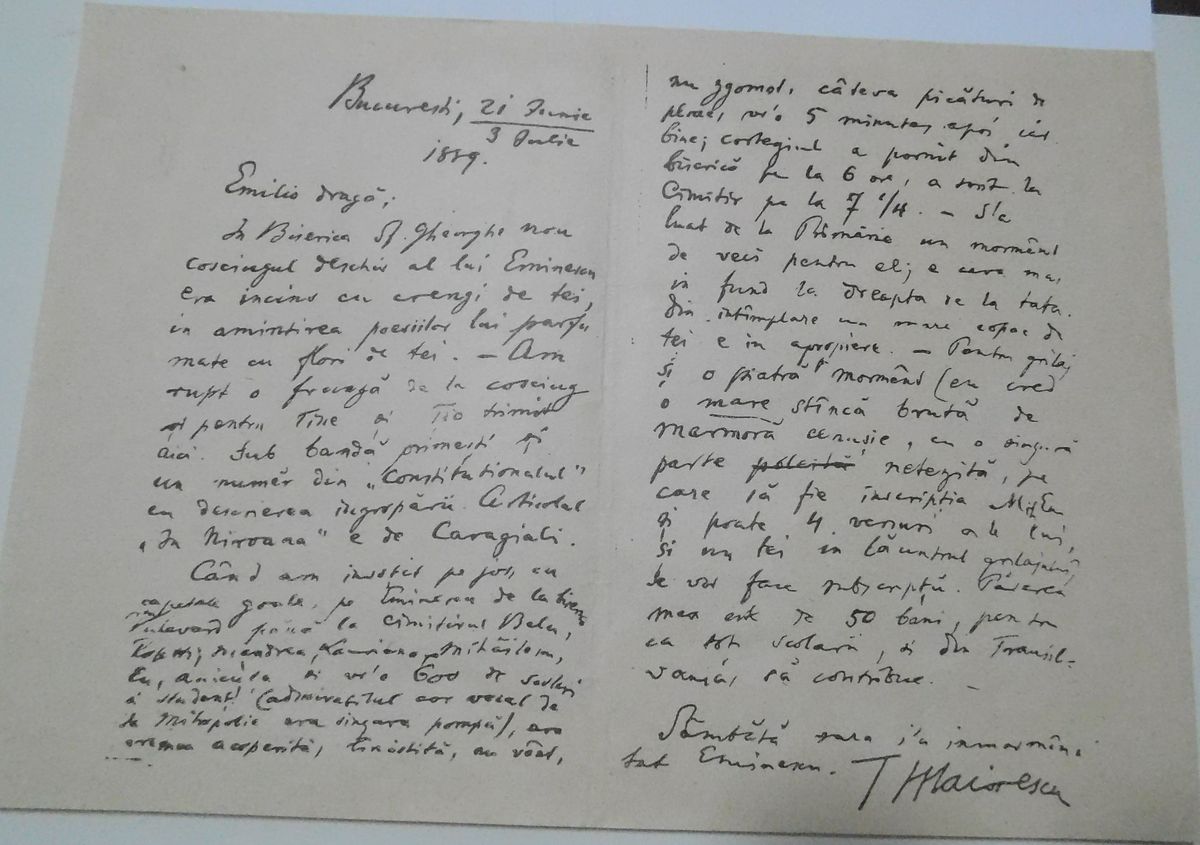 Bucuresti, 21 Iunie
3 Iulie
1889.
Emilio dragă;
In Biserica Sf. Gheorghe nou
cosciugul deschis al lui Eminescu
era incins cu crengi de tei,
in amintirea poesiilor lui parfu
mate cu flori de tei. — Am
rupt o frunză de la cosciug
și pentru Tine si Ți-o trimit
aici. Sub bandă primești și
un număr din „Constitutionalul"
cu descrierea ingropării. Articolul
„In Nirvana" e de Caragiali.
Când am insotit pe jos, cu
capetele goale, pe Eminescu de la biserica
Bulevard până la cimitirul Belu,
Mandrea, Laurian, Mihăilescu,
Eu, Anicuta si vr'o 600 de scolari
si studenti (admirabilul cor vocal de
la Mitropolie era singura pompă), era
vremea acoperită, liniștită, nu vânt,
nu zgomot, câteva picături de
ploae, vr'o 5 minute, apoi iar
bine; cortegiul a pornit din
biserică pe la 6 ore, a sosit la
Cimitir pe la 7 1/4. — S'a
luat de la Primărie un mormânt
de veci pentru el; e ceva mai
in fund la dreapta de la tata.
Din intîmplare un mare copac de
tei e in apropiere. — Pentru grilaj
și o piatră p. mormânt (eu cred
o mare stîncă brută de
marmoră cenusie, cu o singură
parte polită netezită, pe
care să fie inscripția M. Em
și poate 4 versuri ale lui,
și un tei in lăuntrul grilajului,
se vor face subscripții. Părerea
mea este de 50 bani, pentru
ca toti scolarii, si din Transil-
vania, să contribue. —
Sâmbătă sara s'a inmormân
tat Eminescu. T Maiorescu